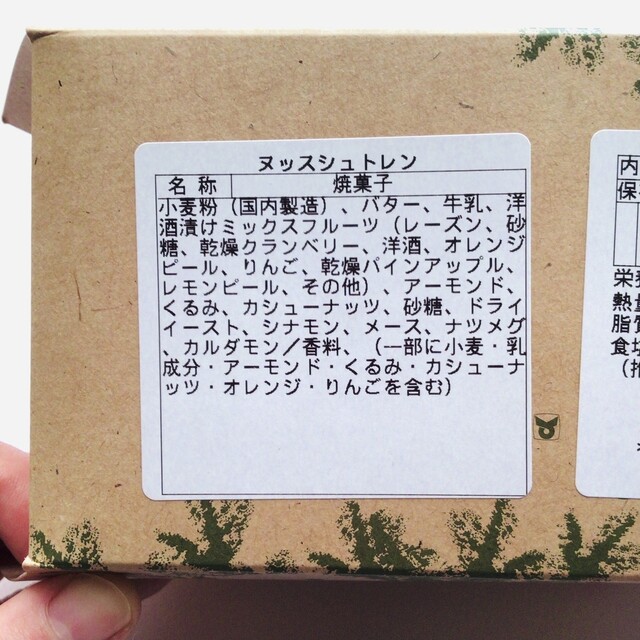 ヌッスシュトレン
名 称 焼菓子
小麦粉（国内製造）、バター、牛乳、洋
酒漬けミックスフルーツ（レーズン、砂
糖、乾燥クランベリー、洋酒、オレンジ
ピール、りんご、乾燥パインアップル、
レモンピール、その他）、アーモンド、
くるみ、カシューナッツ、砂糖、ドライ
イースト、シナモン、メース、ナツメグ
、カルダモン／香料、（一部に小麦・乳
成分・アーモンド・くるみ・カシューナ
ッツ・オレンジ・りんごを含む）
内
保
栄養
熱量
脂質
食塩
（推